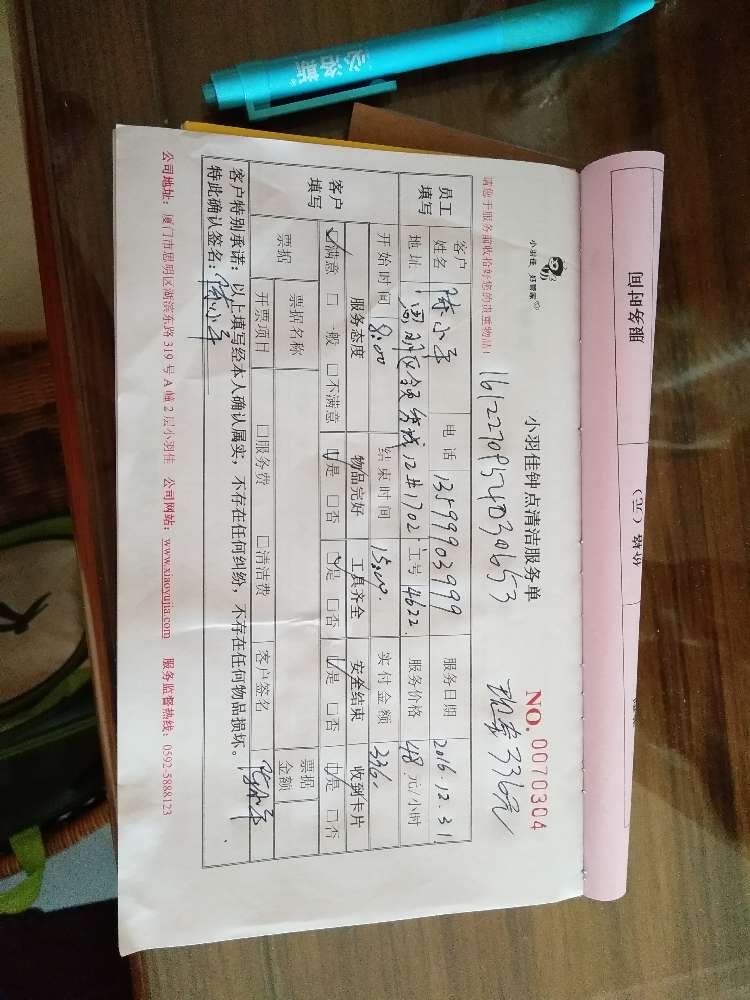 必洽斯
服务时间
小羽佳 好管家
小羽佳钟点清洁服务单
NO. 0070304
请您于服务前收拾好您的贵重物品!
现字336元
员工填写
客户姓名 陈小军 电话 13599903999 服务日期 2016.12.31
地址 12#1702 工号 4622 服务价格 48 元/小时
开始时间 8:00 结束时间 15:00. 实付金额 336
客户填写
服务态度 物品完好 工具齐全 安全结束 收到卡片
☑满意 □一般 □不满意 ☑是 □否 ☑是 □否 ☑是 □否 ☑是 □否
票据 票据名称 票据金额
开票项目 □服务费 □清洁费 客户签名 陈小军
客户特别承诺:以上填写经本人确认属实,不存在任何纠纷,不存在任何物品损坏。
特此确认签名:陈小军
公司地址:厦门市思明区湖滨东路319号A幢2层小羽佳 公司网站:www.xiaoyujia.com 服务监督热线:0592-5888123